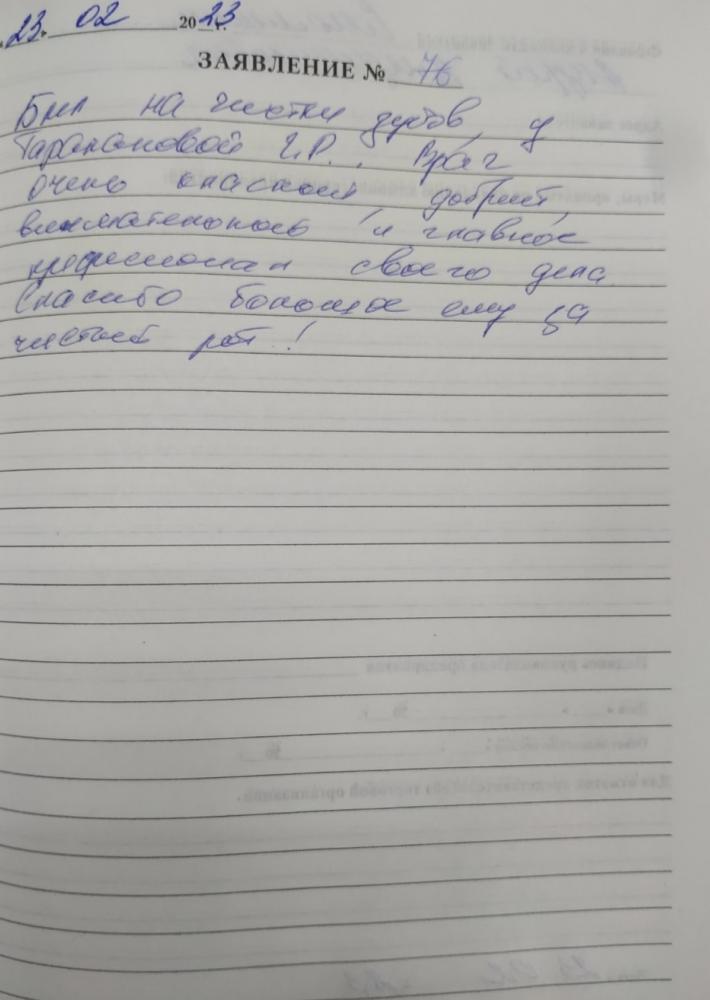 23. 02 2023 г.
ЗАЯВЛЕНИЕ № 76
Был на чистки зубов у
Таракановой И.Р.. Врач
очень классный, добрый,
внимательный и главное
профессионал своего дела
Спасибо большое ему за
чистый рот!